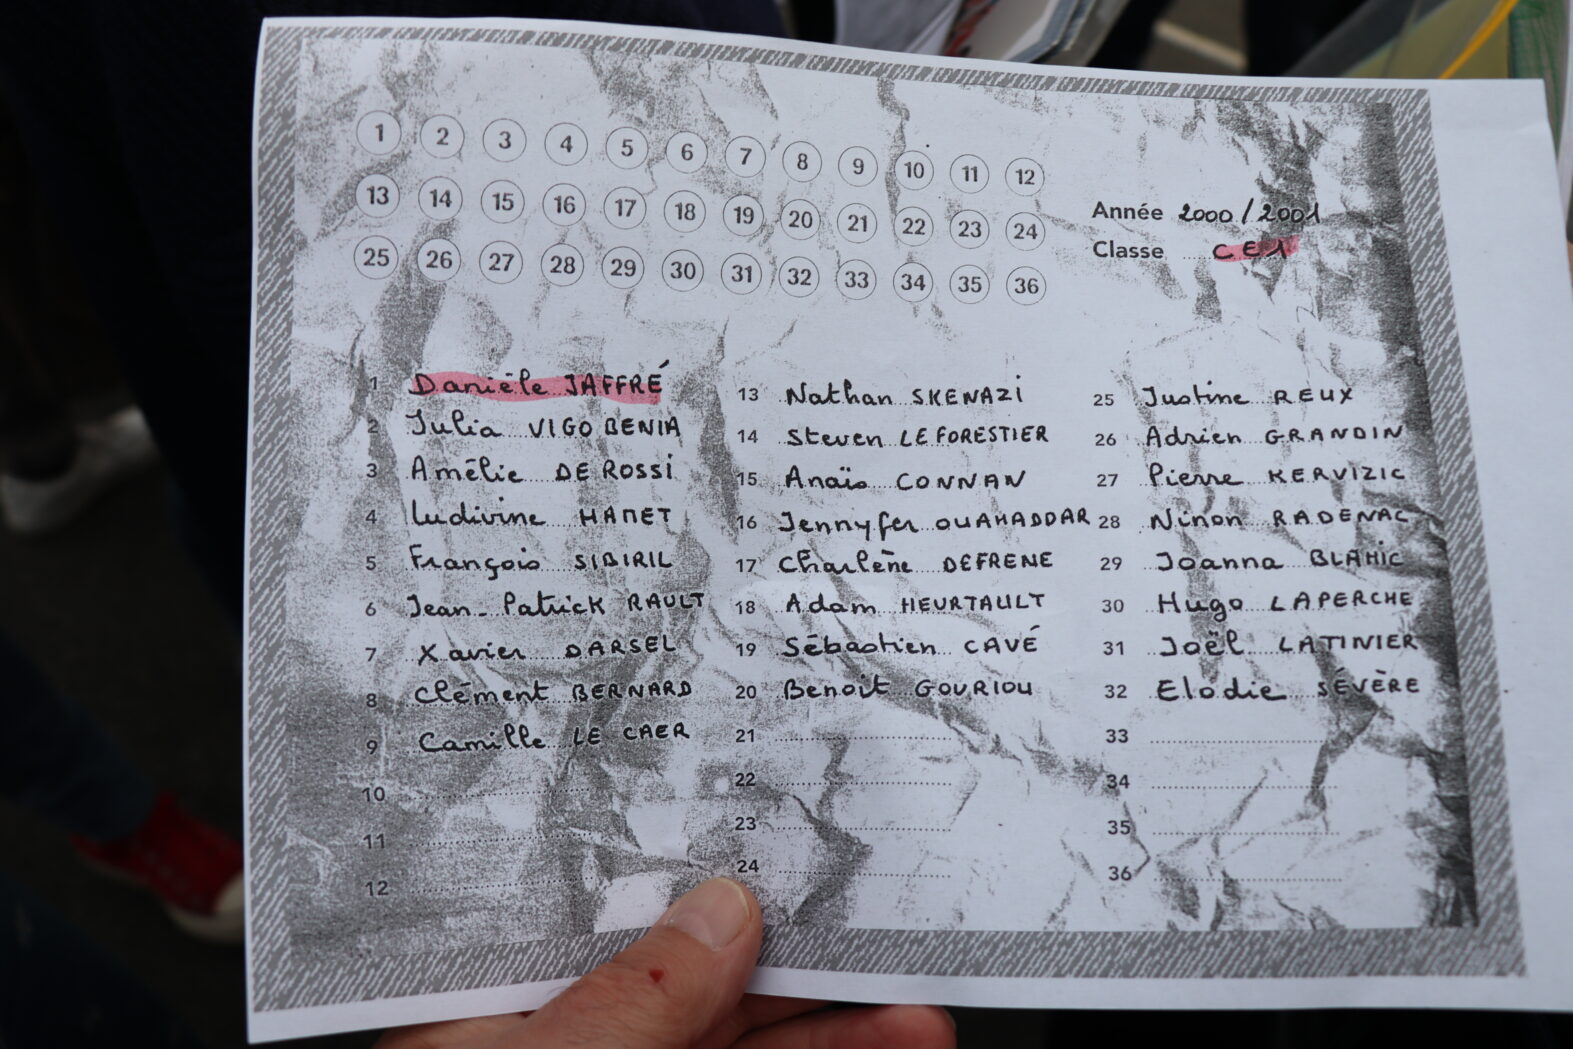 1 2 3 4 5 6 7 8 9 10 11 12
13 14 15 16 17 18 19 20 21 22 23 24
25 26 27 28 29 30 31 32 33 34 35 36
Année 2000/2001
Classe CE1
1 Danièle JAFFRÉ
2 Julia VIGO BENIA
3 Amélie DE ROSSI
4 Ludivine HAMET
5 François SIBIRIL
6 Jean-Patrick RAULT
7 Xavier DARSEL
8 Clément BERNARD
9 Camille LE CAER
10
11
12
13 Nathan SKENAZI
14 Steven LE FORESTIER
15 Anaïs CONNAN
16 Jennyfer OUAHADDAR
17 Charlène DEFRENE
18 Adam HEURTAULT
19 Sébastien CAVÉ
20 Benoît GOURIOU
21
22
23
24
25 Justine REUX
26 Adrien GRANDIN
27 Pierre KERVIZIC
28 Ninon RADENAC
29 Joanna BLAHIC
30 Hugo LAPERCHE
31 Joël LATINIER
32 Elodie SÉVÈRE
33
34
35
36